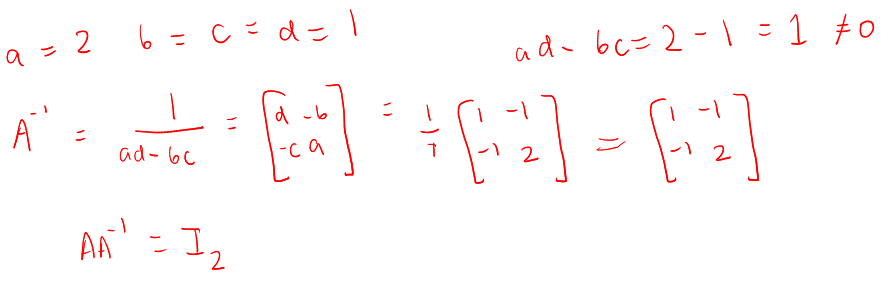 a = 2 b = c = d = 1 ad - bc = 2 - 1 = 1 ≠ 0
A⁻¹ = 1/(ad - bc) = [d -b; -c a] = 1/1 [1 -1; -1 2] = [1 -1; -1 2]
AA⁻¹ = I₂